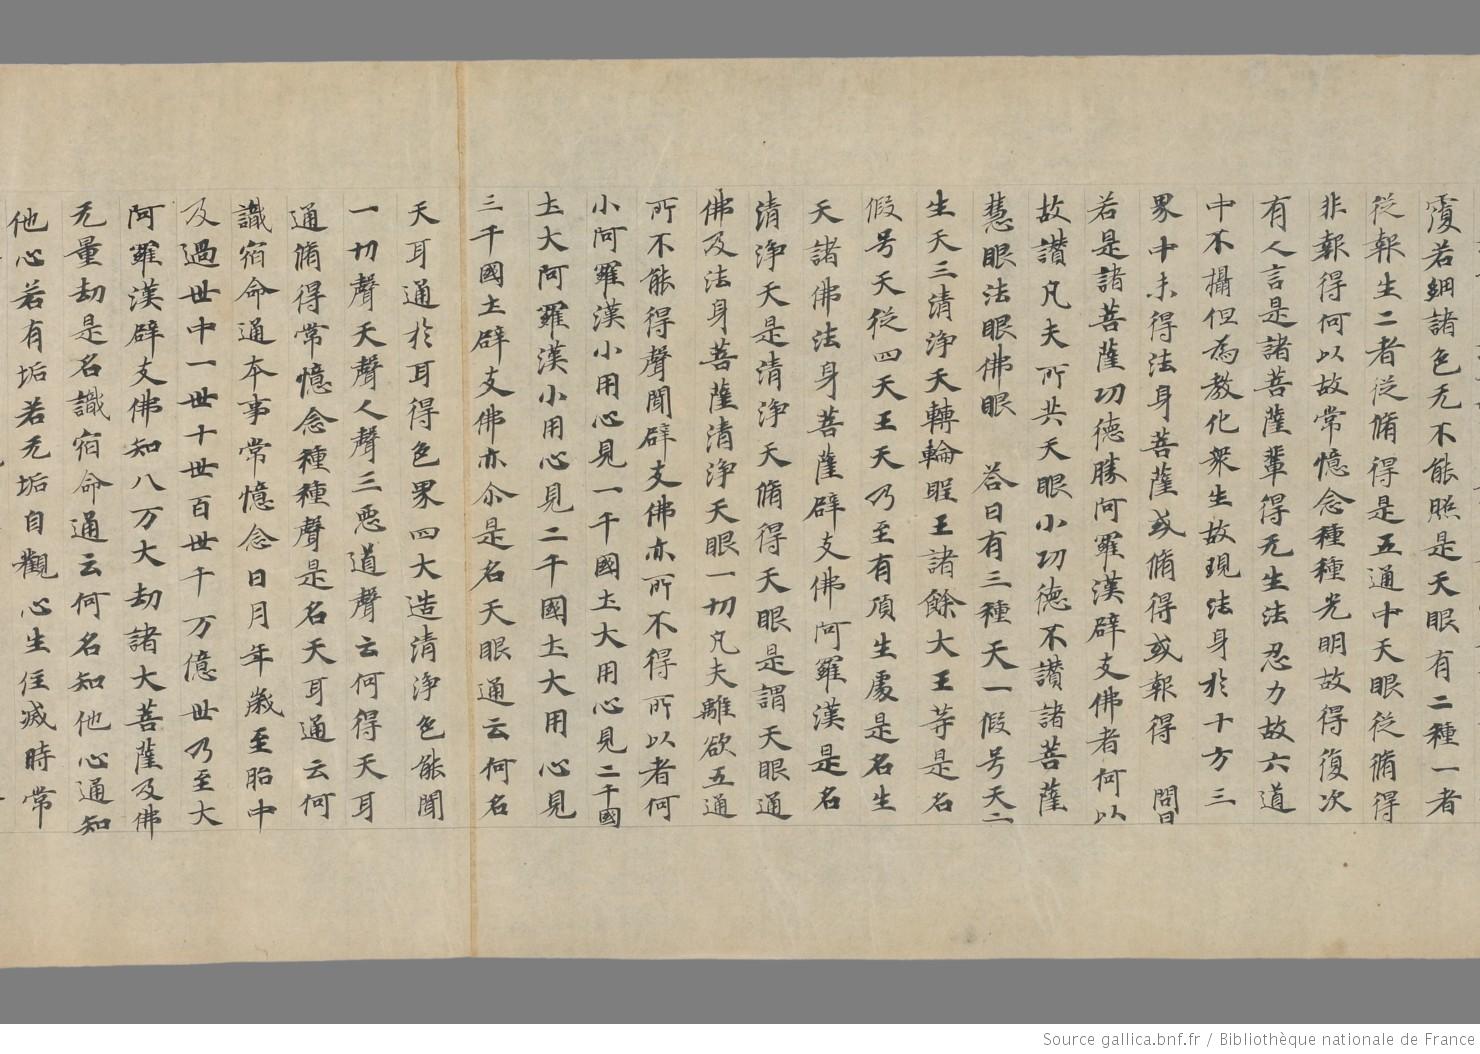 覆若細諸色无不能照是天眼有二種一者
從報生二者從脩得是五通中天眼從脩得
非報得何以故常憶念種種光明故得復次
有人言是諸菩薩輩得无生法忍力故六道
中不攝但為教化衆生故現法身於十方三
界中未得法身菩薩或脩得或報得 問曰
若是諸菩薩功德勝阿羅漢辟支佛者何以
故讃凡夫所共天眼小功德不讃諸菩薩
慧眼法眼佛眼 荅曰有三種天一假号天二
生天三清浄天轉輪聖王諸餘大王等是名
假号天從四天王天乃至有頂生處是名生
天諸佛法身菩薩辟支佛阿羅漢是名
清浄天是清浄天脩得天眼是謂天眼通
佛及法身菩薩清浄天眼一切凡夫離欲五通
所不能得聲聞辟支佛亦所不得所以者何
小阿羅漢小用心見一千國土大用心見二千國
土大阿羅漢小用心見二千國土大用心見
三千國土辟支佛亦尒是名天眼通云何名
天耳通於耳得色界四大造清浄色能聞
一切聲天聲人聲三惡道聲云何得天耳
通脩得常憶念種種聲是名天耳通云何
識宿命通本事常憶念日月年歲至胎中
及過世中一世十世百世千万億世乃至大
阿羅漢辟支佛知八万大劫諸大菩薩及佛
无量劫是名識宿命通云何名知他心通知
他心若有垢若无垢自觀心生住滅時常
Source gallica.bnf.fr / Bibliothèque nationale de France